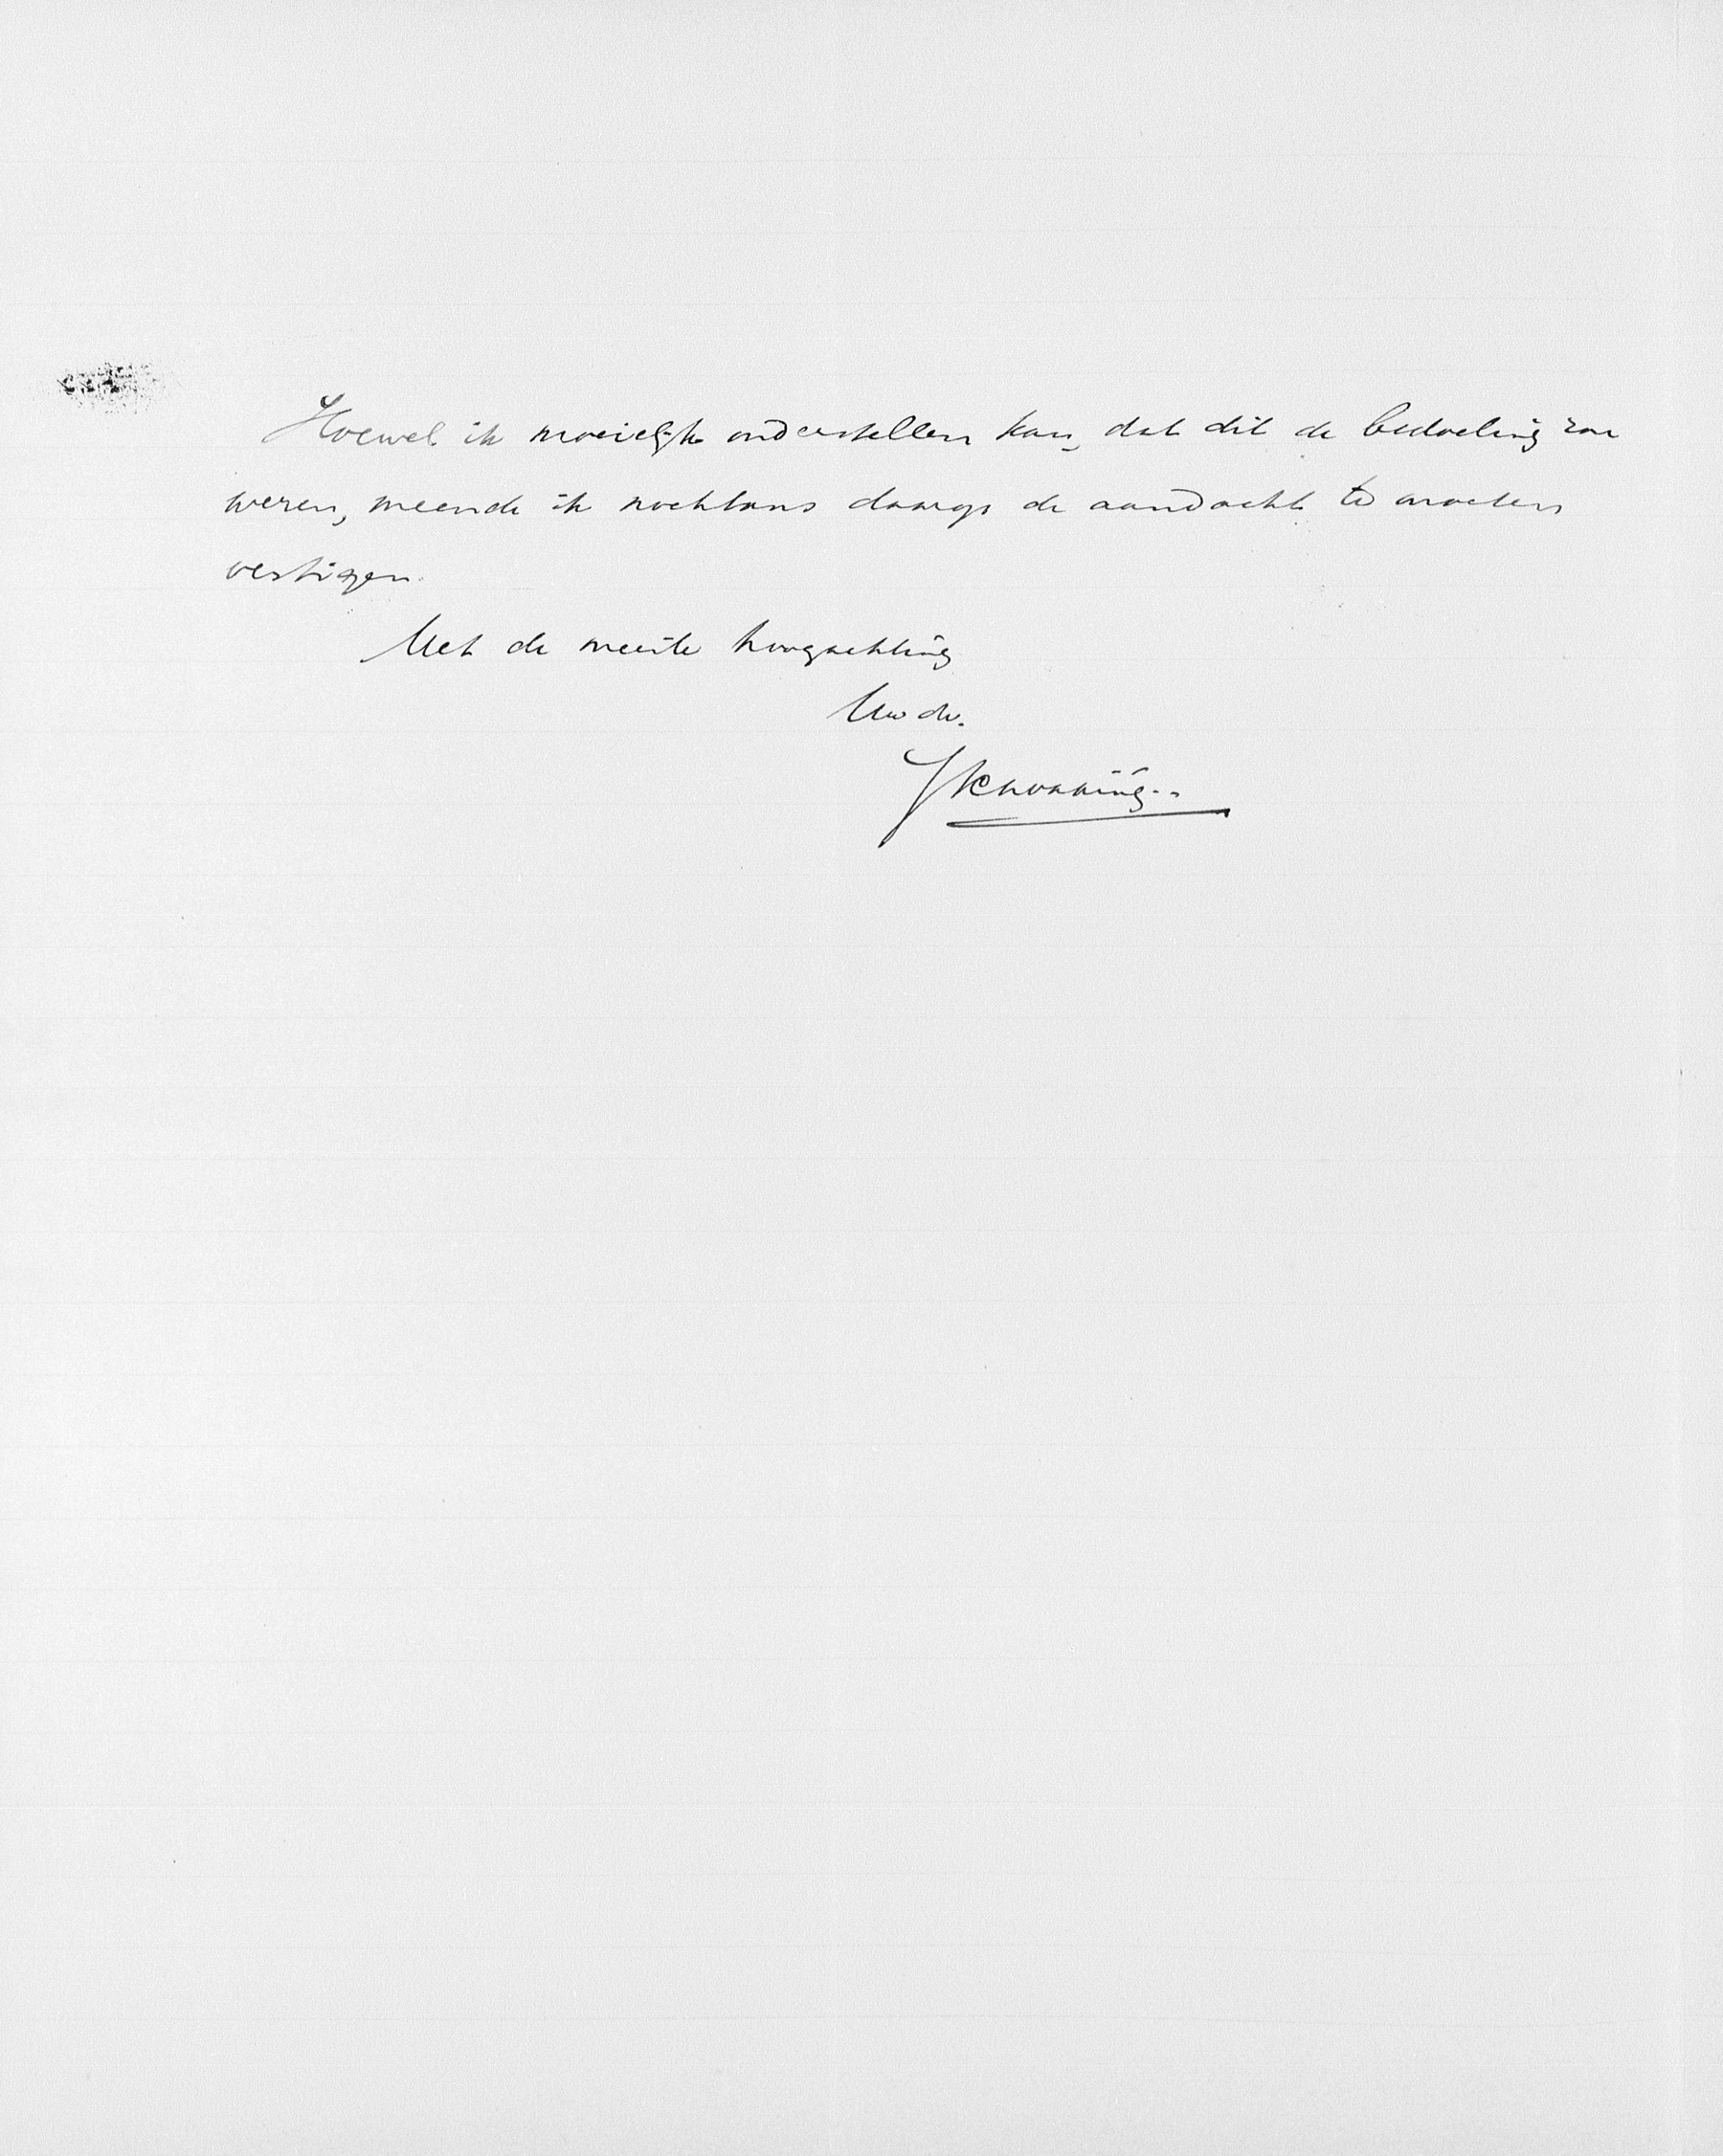 Hoewel ik moeielijk onderstellen kan, dat dit de bedoeling zou
wezen, meende ik nochtans daarop de aandacht te moeten
vestigen.
Met de meeste hoogachting
Uw dv.